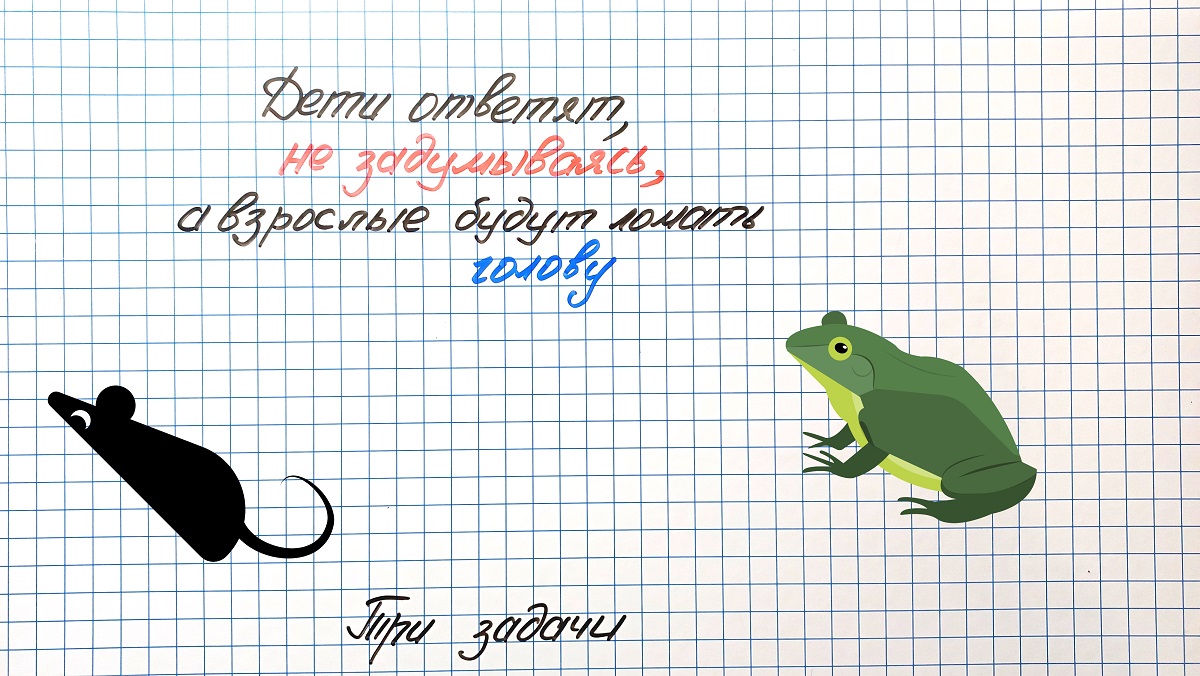 Дети ответят,
не задумываясь,
а взрослые будут ломать
голову
Три задачи